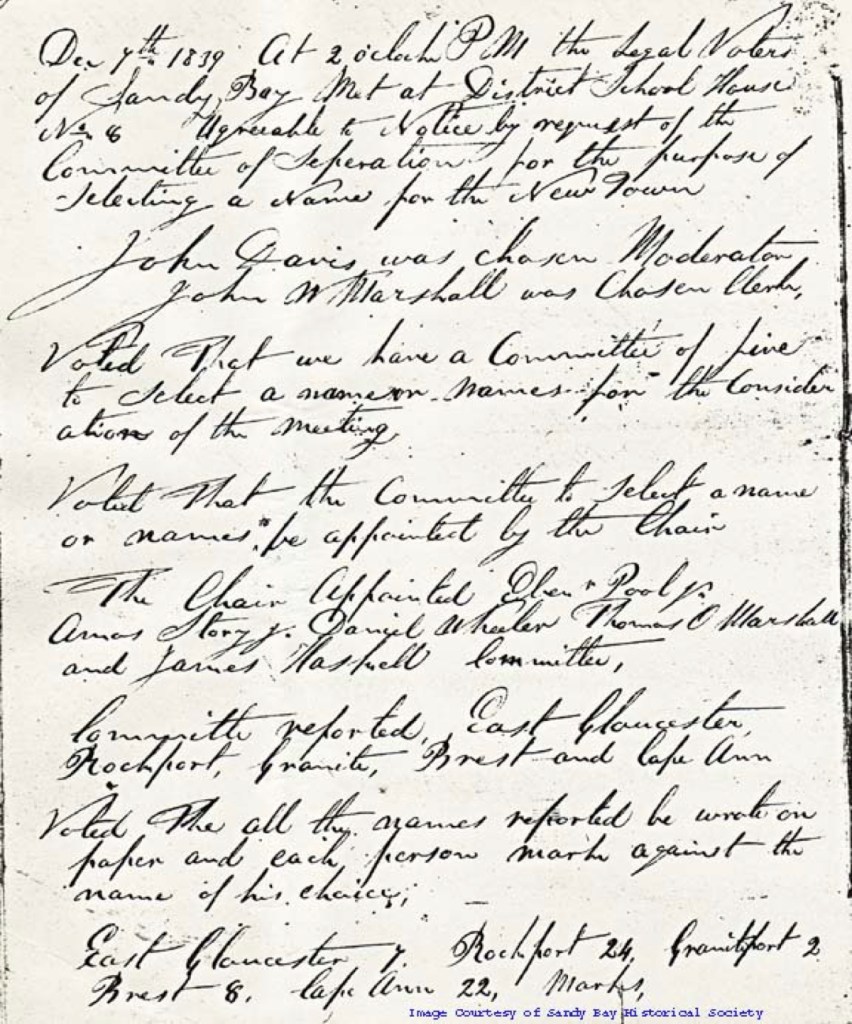 Dec 7th 1839 At 2 oclock PM the Legal Voters
of Sandy Bay Met at District School House
No. 8 Agreeable to Notice by request of the
Committee of Seperation for the purpose of
selecting a Name for the New Town
John Davis was chosen Moderator
John W Marshall was Chosen Clerk,
Voted That we have a Committee of five
to select a name or names for the Consider
ation of the meeting
Voted That the Committee to select a name
or names be appointed by the Chair
The Chair Appointed Ebenr Pool jr.
Amos Story jr. Daniel Wheeler Thomas O Marshall
and James Haskell Committee,
Committe reported, East Gloucester,
Rockport, Granite, Brest and Cape Ann
Voted The all the names reported be wrote on
paper and each person mark against the
name of his choice;
East Gloucester 7. Rockport 24, Granitport 2
Brest 8. Cape Ann 22, Marks,
Image Courtesy of Sandy Bay Historical Society